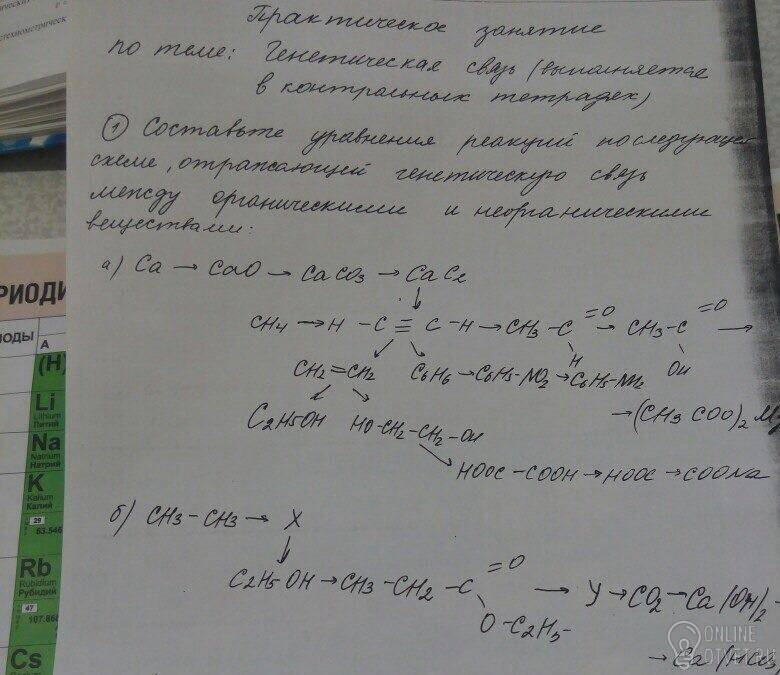 Практическое занятие
по теме: Генетическая связь (выполняется
в контрольных тетрадех)
① Составьте уравнения реакций последующей
схеме, отражающей генетическую связь
между органическими и неорганическими
веществами:
а) Ca → CaO → CaCO3 → CaC2
↓
CH4 → H - C ≡ C - H → CH3 - C =O H → CH3 - C =O OH →
CH2 = CH2 C6H6 → C6H5-NO2 → C6H5-NH2
→ (CH3COO)2 Mg
C2H5OH HO-CH2-CH2-OH
HOOC - COOH → HOOC → COONa
б) CH3 - CH3 → X
↓
C2H5OH → CH3 - CH2 - C =O O - C2H5 → У → CO2 → Ca(OH)2 -
→ Ca(HCO3
РИОДИ
ОДЫ
A
(H)
Li
Lithium
Литий
Na
Natrium
Натрий
K
Kalium
Калий
29
63.546
Rb
Rubidium
Рубидий
47
107.868
Cs
ONLINE
OTVET.RU